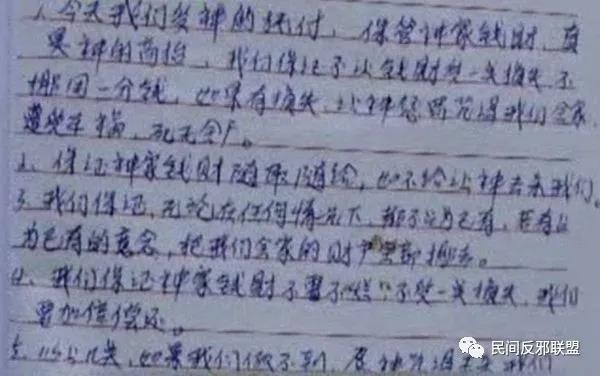 1、今天我们受神的托付,保管神家钱财,直
神的
,我们保证不让钱财受一点损失,不
挪用一分钱,如果有损失,让神
我们全家
遭 车祸,死无全尸。
2、保证神家钱财随取随给,如不给让神击杀我们。
3、我们保证,无论在任何情况下,都不占为己有,若有占
为己有的意念,把我们全家的财产全部挪去。
4、我们保证神家钱财不 不受一点损失,我们
要加倍偿还。
5、以上几点,如果我们做不到,愿神 我们
民间反邪联盟